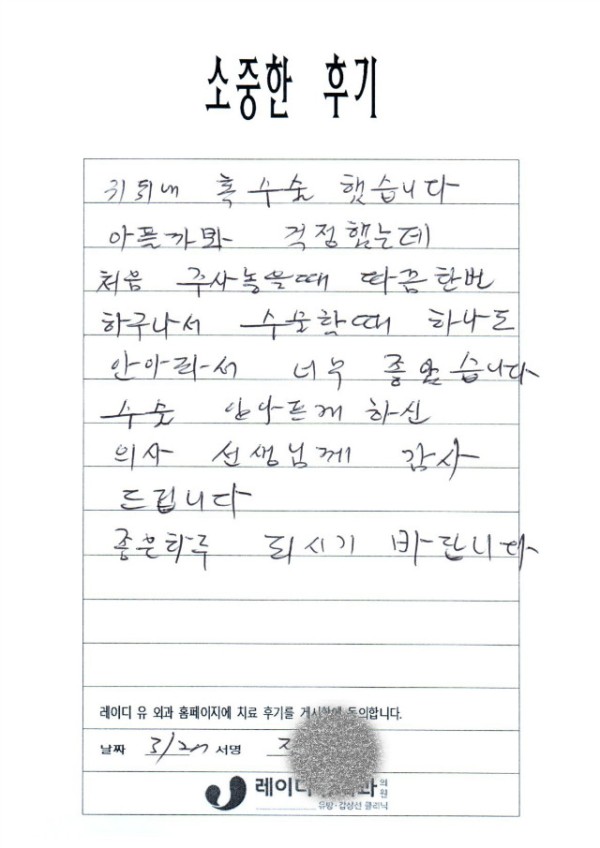 소중한 후기
귀뒤네 혹 수술 했습니다
아플까봐 걱정했는데
처음 주사놓을때 따끔한번
하구나서 수술할때 하나도
안아퍼서 너무 좋았습니다
수술 안아프게 하신
의사 선생님께 감사
드립니다
좋은하루 되시기 바란니다
레이디 유 외과 홈페이지에 치료 후기를 동의합니다.
날짜 3/27 서명
레이디 의원
유방·갑상선 클리닉